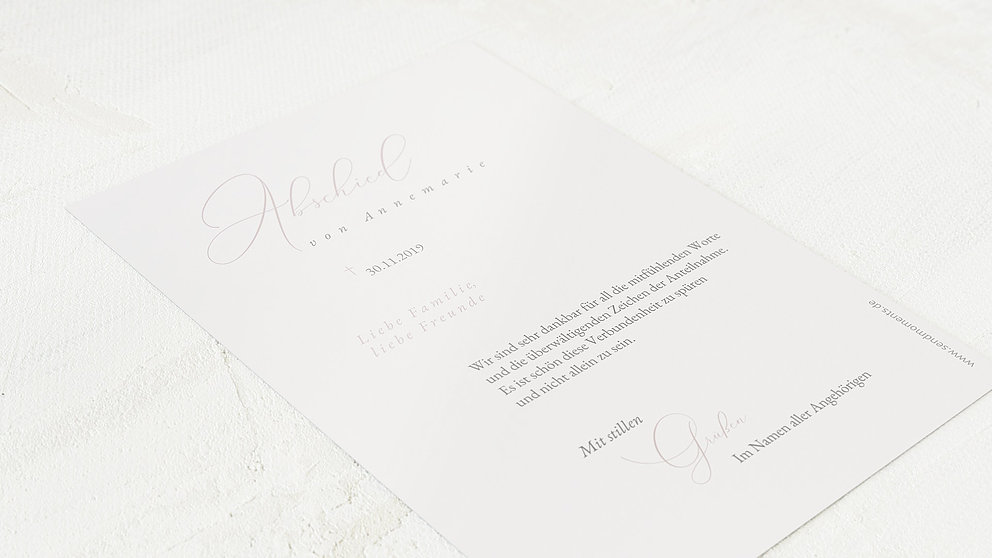 Abschied
von Annemarie
† 30.11.2019
Liebe Familie,
liebe Freunde
Wir sind sehr dankbar für all die mitfühlenden Worte
und die überwältigenden Zeichen der Anteilnahme.
Es ist schön diese Verbundenheit zu spüren
und nicht allein zu sein.
Mit stillen
Grüßen
Im Namen aller Angehörigen
www.sendmoments.de